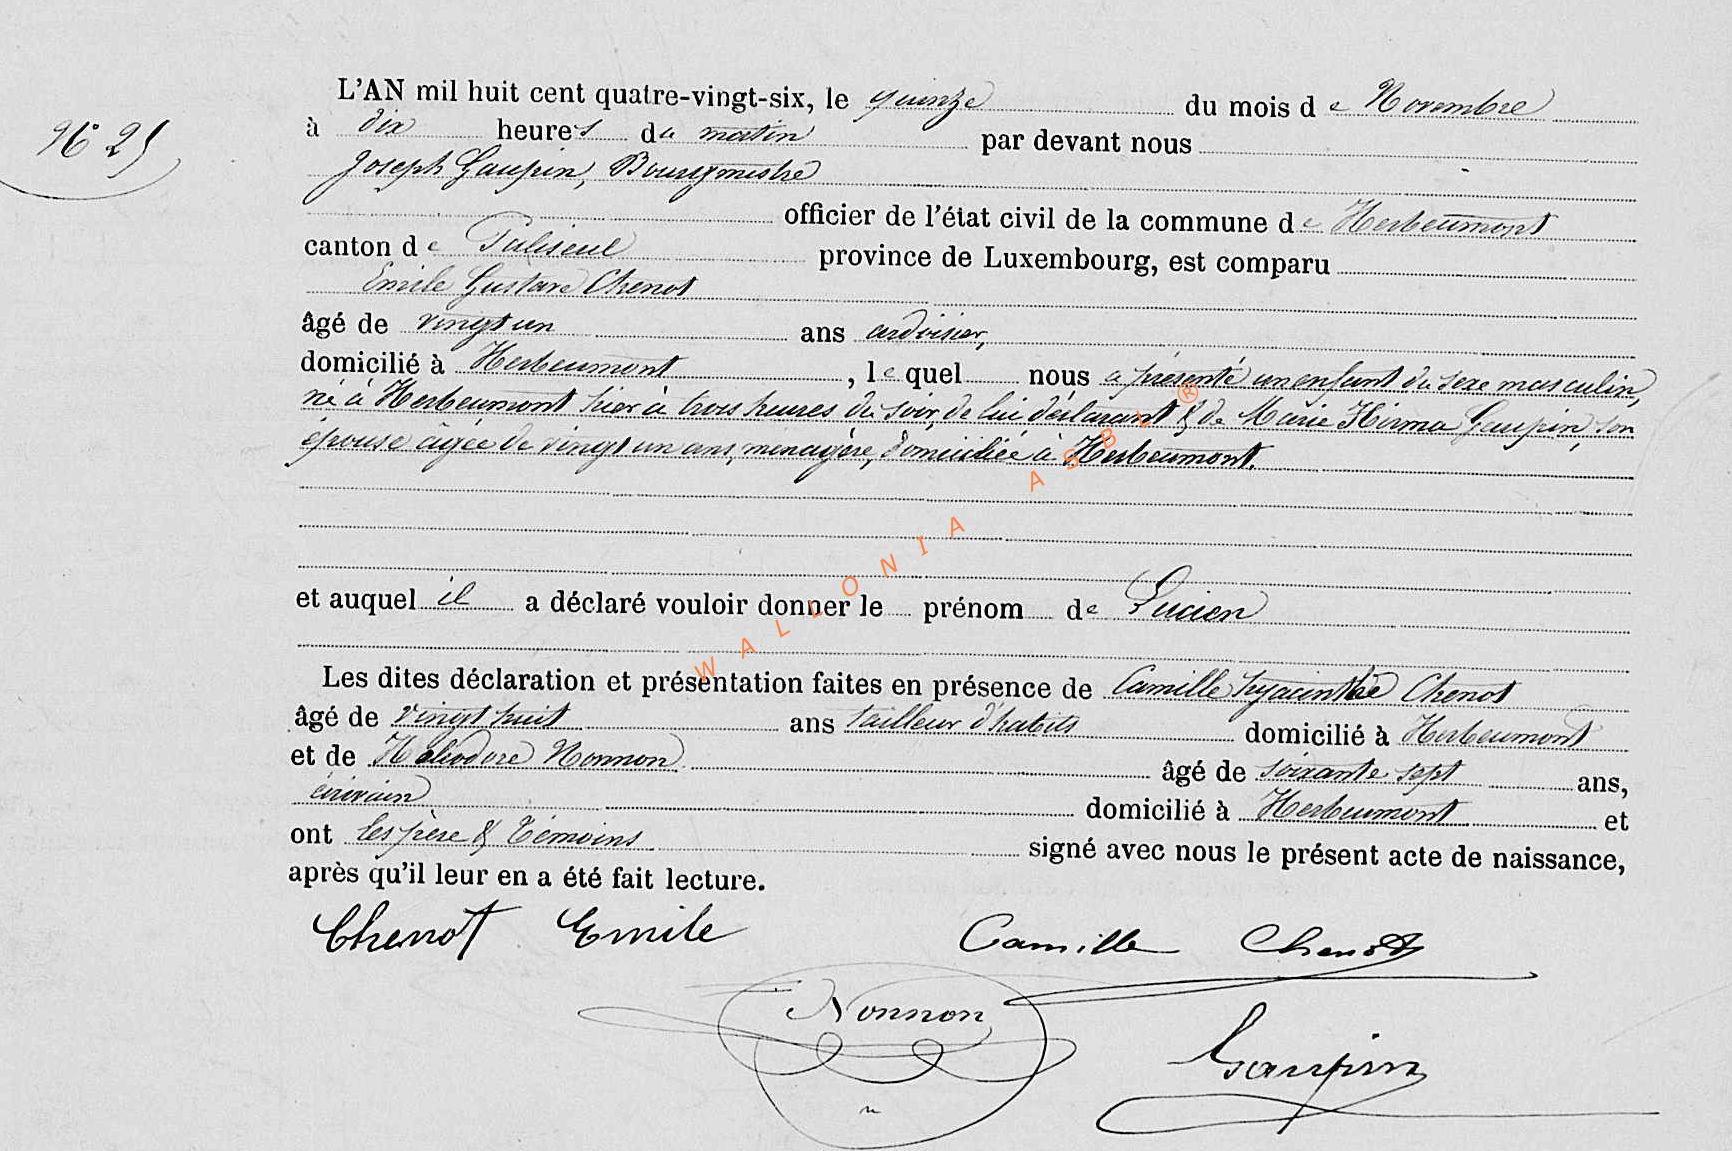 N° 25
L'AN mil huit cent quatre-vingt-six, le quinze du mois de Novembre
à dix heures du matin par devant nous
Joseph Gaupin, Bourgmestre
officier de l'état civil de la commune de Herbeumont
canton de Paliseul province de Luxembourg, est comparu
Emile Gustave Chenot
âgé de vingt un ans ardoisier,
domicilié à Herbeumont, lequel nous a présenté un enfant du sexe masculin,
né à Herbeumont hier à trois heures du soir, de lui déclarant & de Marie Hirma Gaupin, son
épouse âgée de vingt un ans, ménagère, domiciliée à Herbeumont.
et auquel il a déclaré vouloir donner le prénom de Lucien
Les dites déclaration et présentation faites en présence de Camille hyacinthe Chenot
âgé de vingt huit ans tailleur d'habits domicilié à Herbeumont
et de Héliodore Nonnon âgé de soixante sept ans,
écrivain domicilié à Herbeumont et
ont les père & témoins signé avec nous le présent acte de naissance,
après qu'il leur en a été fait lecture.
Chenot Emile Camille Chenot
Nonnon
Gaupin
WALLONIA ASBL ®